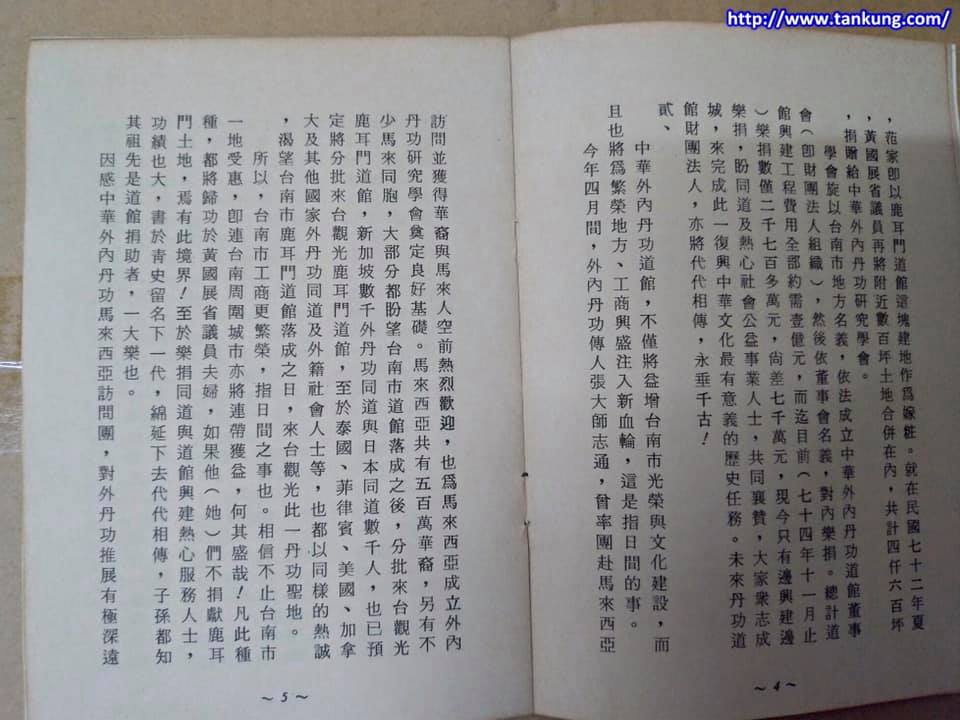 http://www.tankung.com/
，范家卽以鹿耳門道館這塊建地作爲嫁粧。就在民國七十二年夏
，黃國展省議員再將附近數百坪土地合併在內，共計四仟六百坪
，捐贈給中華外內丹功硏究學會。
學會旋以台南市地方名義，依法成立中華外內丹功道館董事
會（卽財團法人組織），然後依董事會名義，對內樂捐。總計道
館興建工程費用全部約需壹億元，而迄目前（七十四年十一月止
）樂捐數僅二千七百多萬元，尙差七千萬元，現今只有邊興建邊
樂捐，盼同道及熱心社會公益事業人士，共同襄贊，大家衆志成
城，來完成此一復興中華文化最有意義的歷史任務。未來丹功道
館財團法人，亦將代代相傳，永垂千古！
貳、
中華外內丹功道館，不僅將益增台南市光榮與文化建設，而
且也將爲繁榮地方、工商興盛注入新血輪，這是指日間的事。
今年四月間，外內丹功傳人張大師志通，曾率團赴馬來西亞
～4～
訪問並獲得華裔與馬來人空前熱烈歡迎，也爲馬來西亞成立外內
丹功硏究學會奠定良好基礎。馬來西亞共有五百萬華裔，另有不
少馬來同胞，大部分都盼望台南市道館落成之後，分批來台觀光
鹿耳門道館，新加坡數千外丹功同道與日本同道數千人，也已預
定將分批來台觀光鹿耳門道館，至於泰國、菲律賓、美國、加拿
大及其他國家外丹功同道及外籍社會人士等，也都以同樣的熱誠
，渴望台南市鹿耳門道館落成之日，來台觀光此一丹功聖地。
所以，台南市工商更繁榮，指日間之事也。相信不止台南市
一地受惠，卽連台南周圍城市亦將連帶獲益，何其盛哉！凡此種
種，都將歸功於黃國展省議員夫婦，如果他（她）們不捐獻鹿耳
門土地，焉有此境界！至於樂捐同道與道館興建熱心服務人士，
功績也大，書於青史留名下一代，綿延下去代代相傳，子孫都知
其祖先是道館捐助者，一大樂也。
因感中華外內丹功馬來西亞訪問團，對外丹功推展有極深遠
～5～